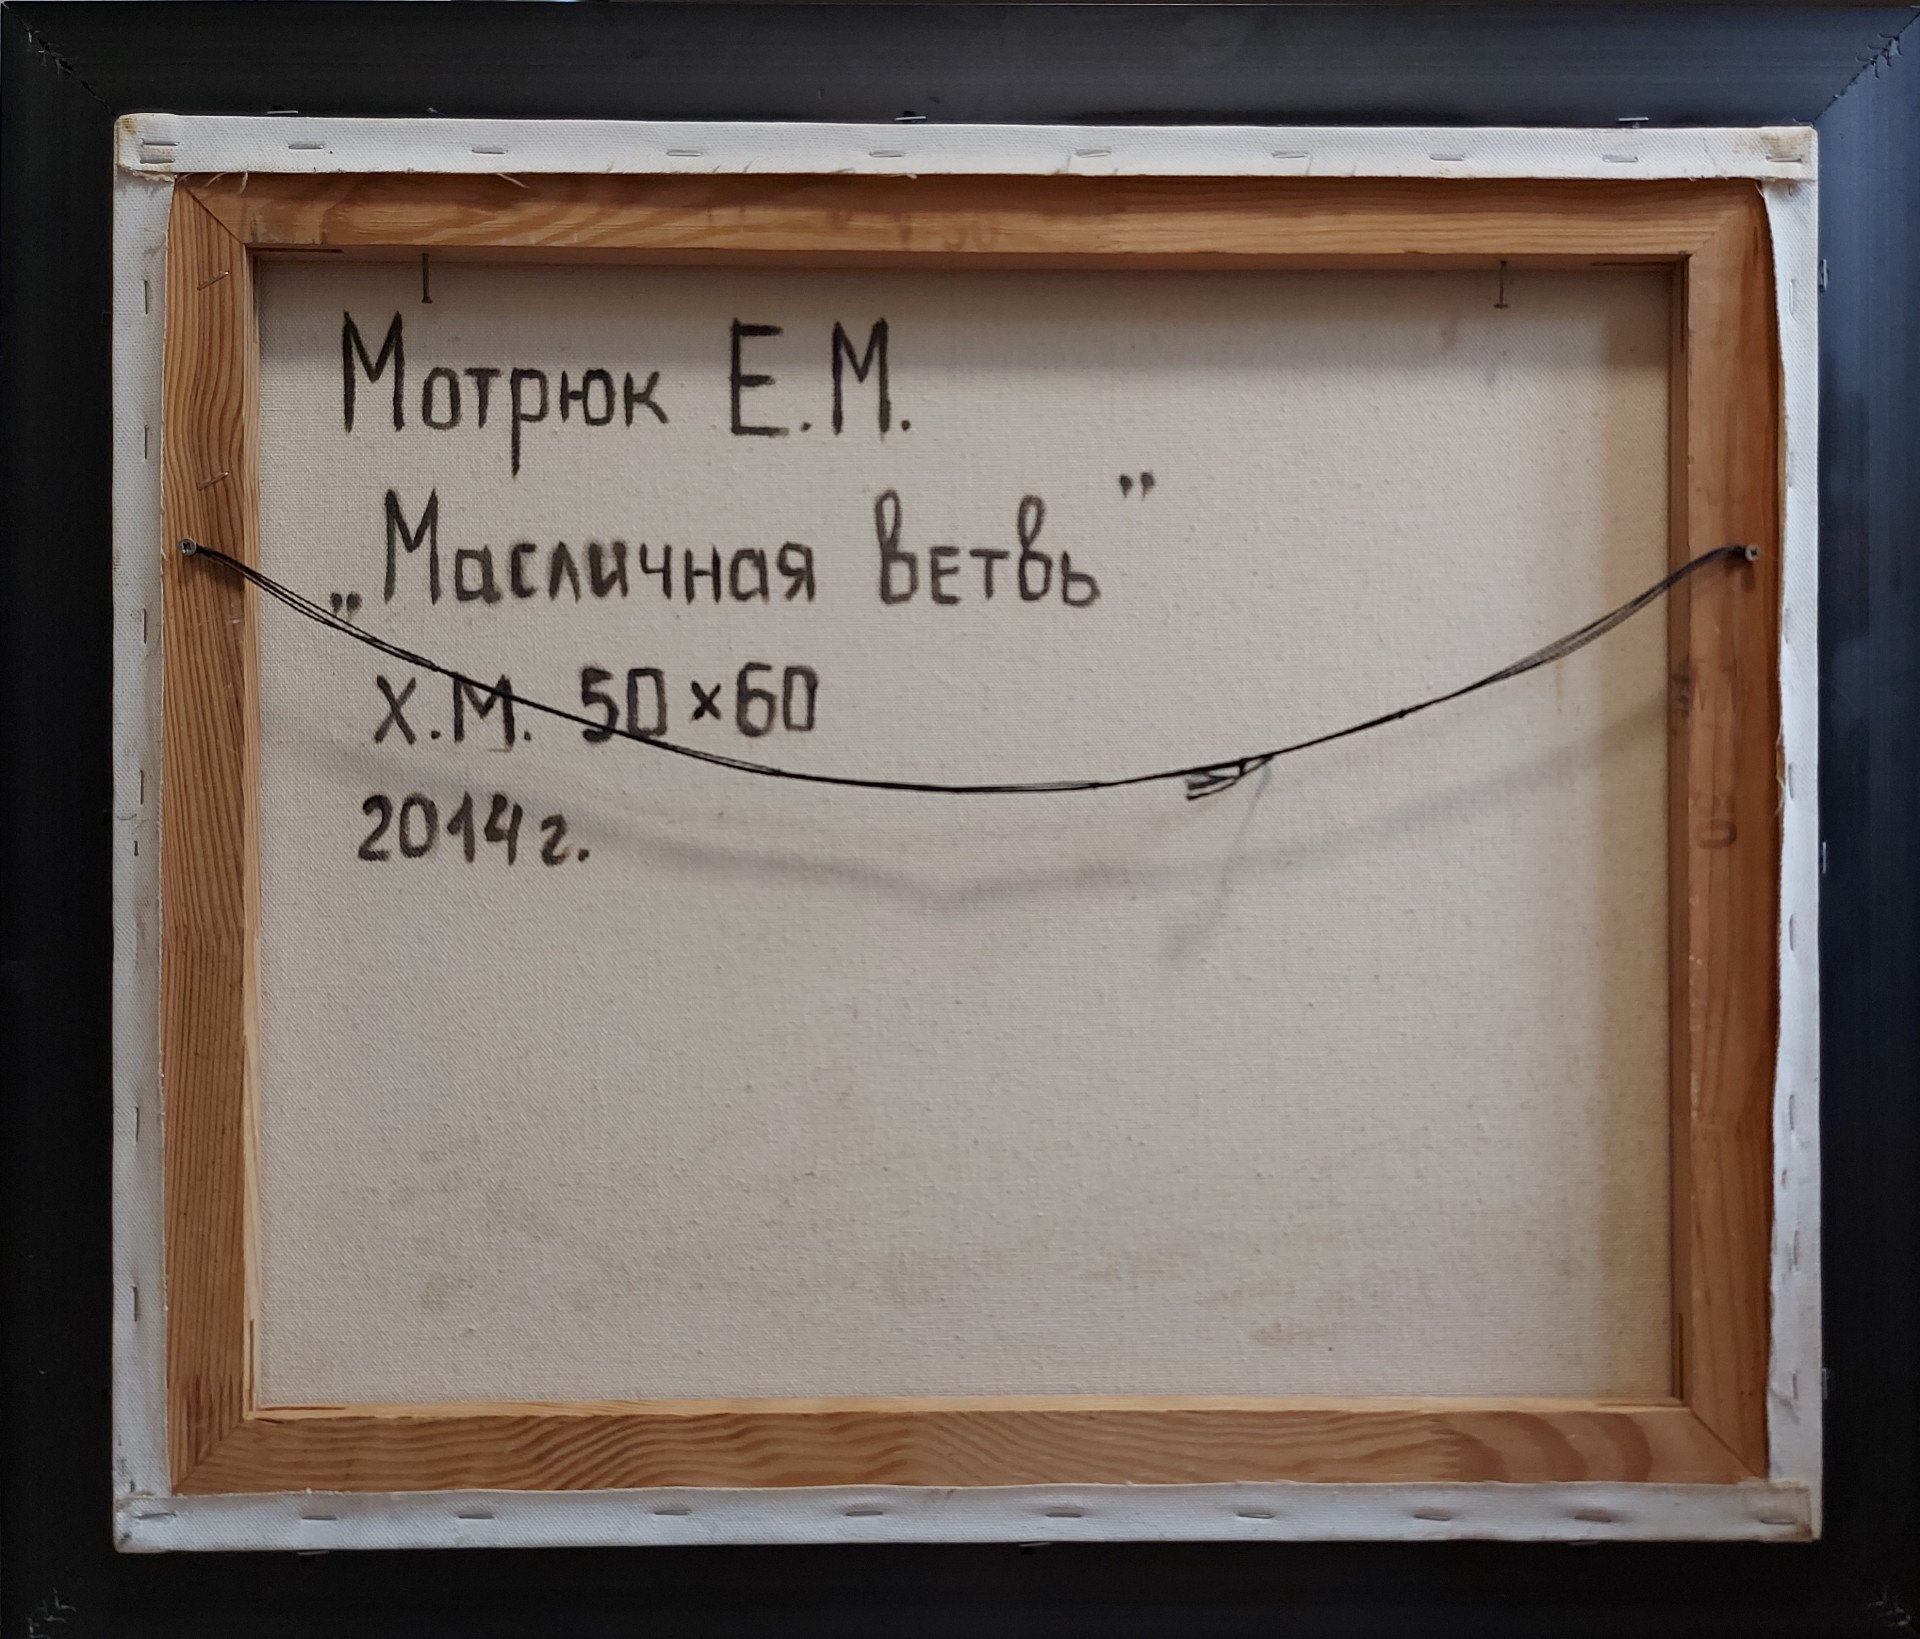 Мотрюк Е.М.
„Масличная ветвь”
Х.М. 50×60
2014г.